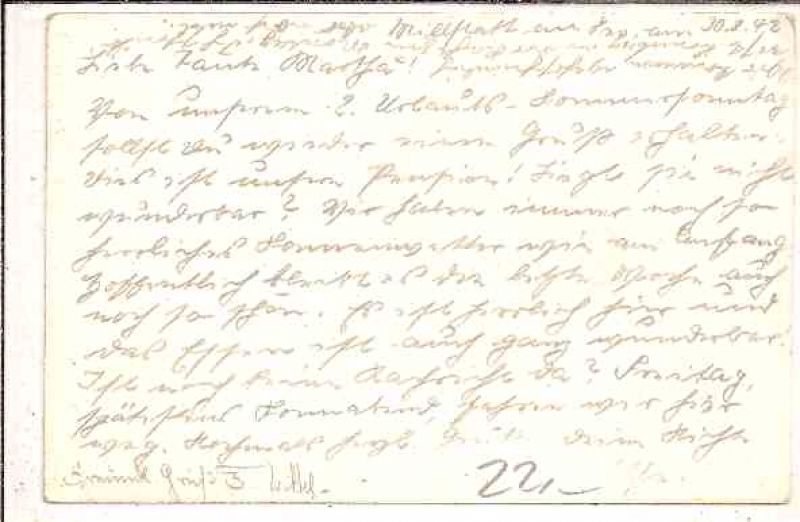 Millstatt am See, am 30.8.42
Liebe Tante Martha!
Von unserem 2. Urlaubs-Sommersonntag
sollst Du wieder einen Gruß erhalten.
Dies ist unsere Pension! Liegt sie nicht
wunderbar? Wir haben immer noch so
herrliches Sonnenwetter wie am Anfang
Hoffentlich bleibt es die letzte Woche auch
noch so schön. Es ist herrlich hier und
das Essen ist auch ganz wunderbar.
Ist noch keine Nachricht da? Freitag,
spätestens Sonnabend, fahren wir hier
weg. Nochmals herzl. Grüße Deine Nichte
Gruß
22,-